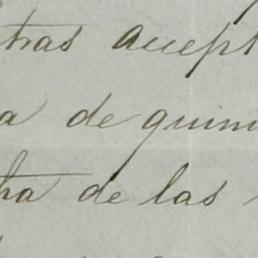 tras accept
a de quin
ha de las